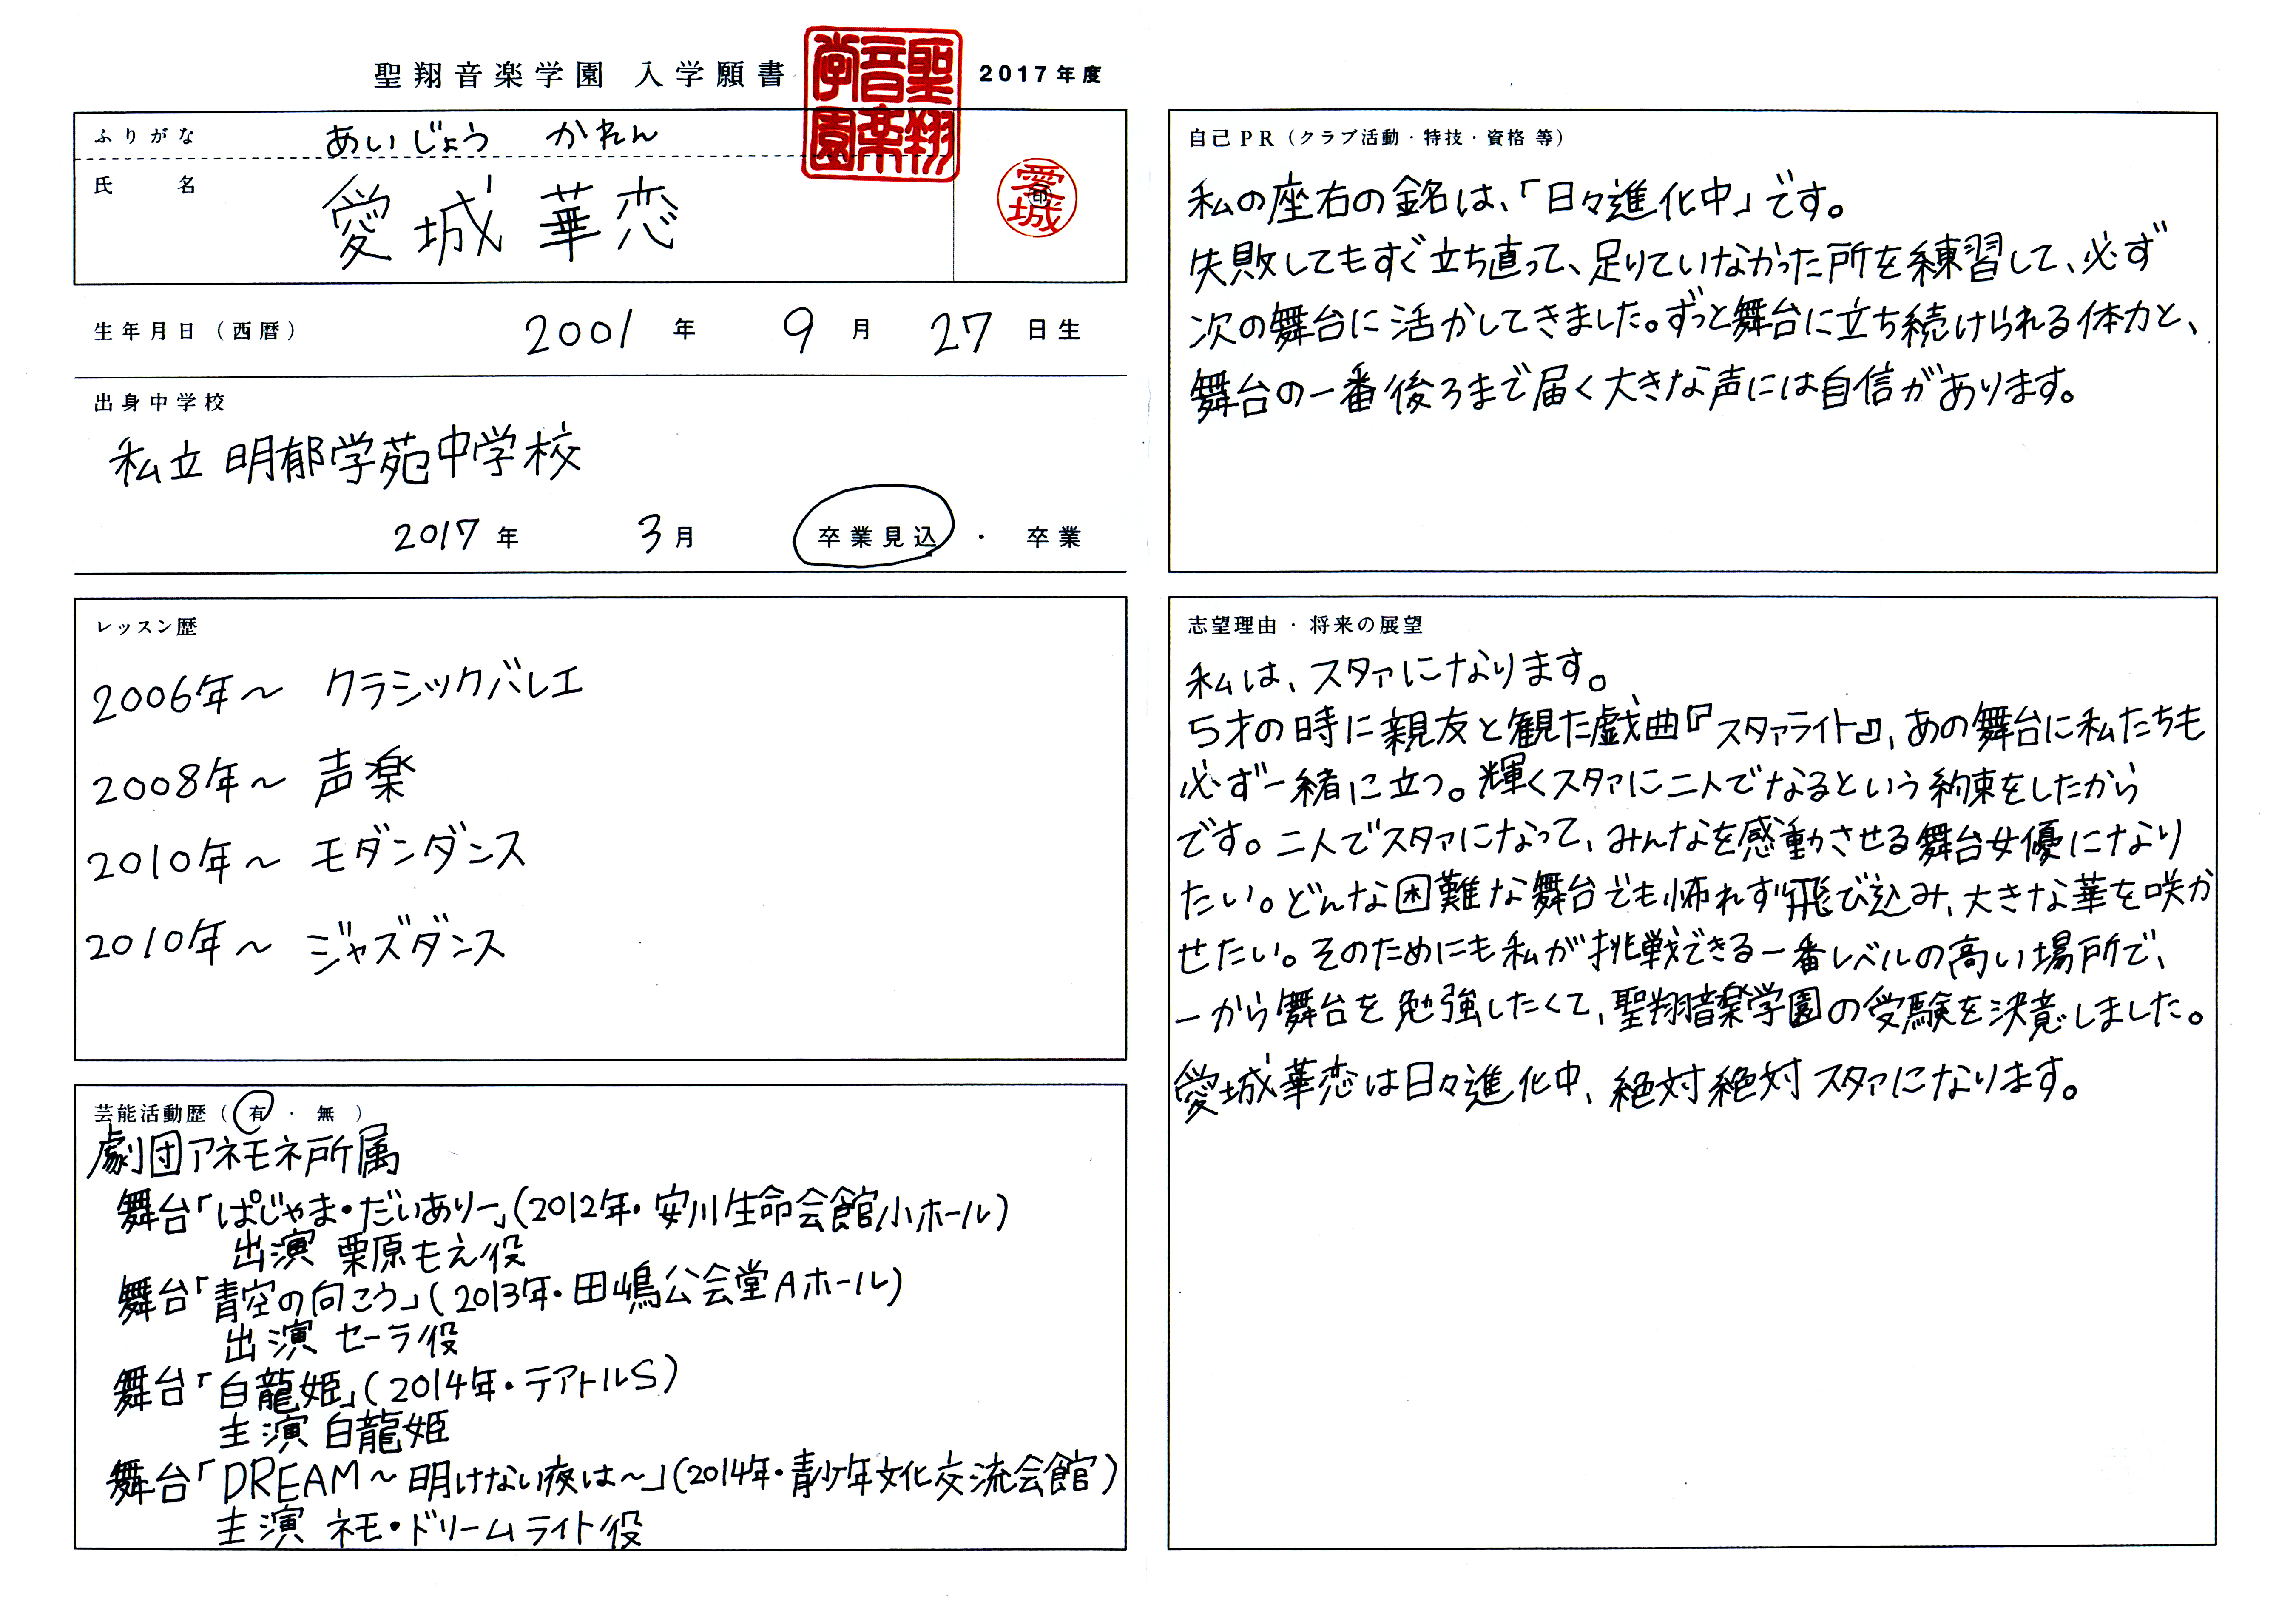 聖翔音楽学園 入学願書
聖翔音楽学園
2017年度
ふりがな あいじょう かれん
氏 名 愛城 華恋
愛城
印
生年月日(西暦) 2001 年 9 月 27 日生
出身中学校
私立 明郁学苑中学校
2017 年 3 月 卒業見込 ・ 卒業
レッスン歴
2006年〜 クラシックバレエ
2008年〜 声楽
2010年〜 モダンダンス
2010年〜 ジャズダンス
芸能活動歴( 有 ・ 無 )
劇団アネモネ所属
舞台「ぱじゃま・だいありー」(2012年・安川生命会館小ホール)
出演 栗原もえ役
舞台「青空の向こう」(2013年・田嶋公会堂Aホール)
出演 セーラ役
舞台「白龍姫」(2014年・テアトルS)
主演 白龍姫
舞台「DREAM〜明けない夜は〜」(2014年・青少年文化交流会館)
主演 ネモ・ドリームライト役
自己PR(クラブ活動・特技・資格 等)
私の座右の銘は、「日々進化中」です。
失敗してもすぐ立ち直って、足りていなかった所を練習して、必ず
次の舞台に活かしてきました。ずっと舞台に立ち続けられる体力と、
舞台の一番後ろまで届く大きな声には自信があります。
志望理由・将来の展望
私は、スタァになります。
5才の時に親友と観た戯曲『スタァライト』、あの舞台に私たちも
必ず一緒に立つ。輝くスタァに二人でなるという約束をしたから
です。二人でスタァになって、みんなを感動させる舞台女優になり
たい。どんな困難な舞台でも怖れず飛び込み、大きな華を咲か
せたい。そのためにも私が挑戦できる一番レベルの高い場所で、
一から舞台を勉強したくて、聖翔音楽学園の受験を決意しました。
愛城華恋は日々進化中、絶対絶対スタァになります。